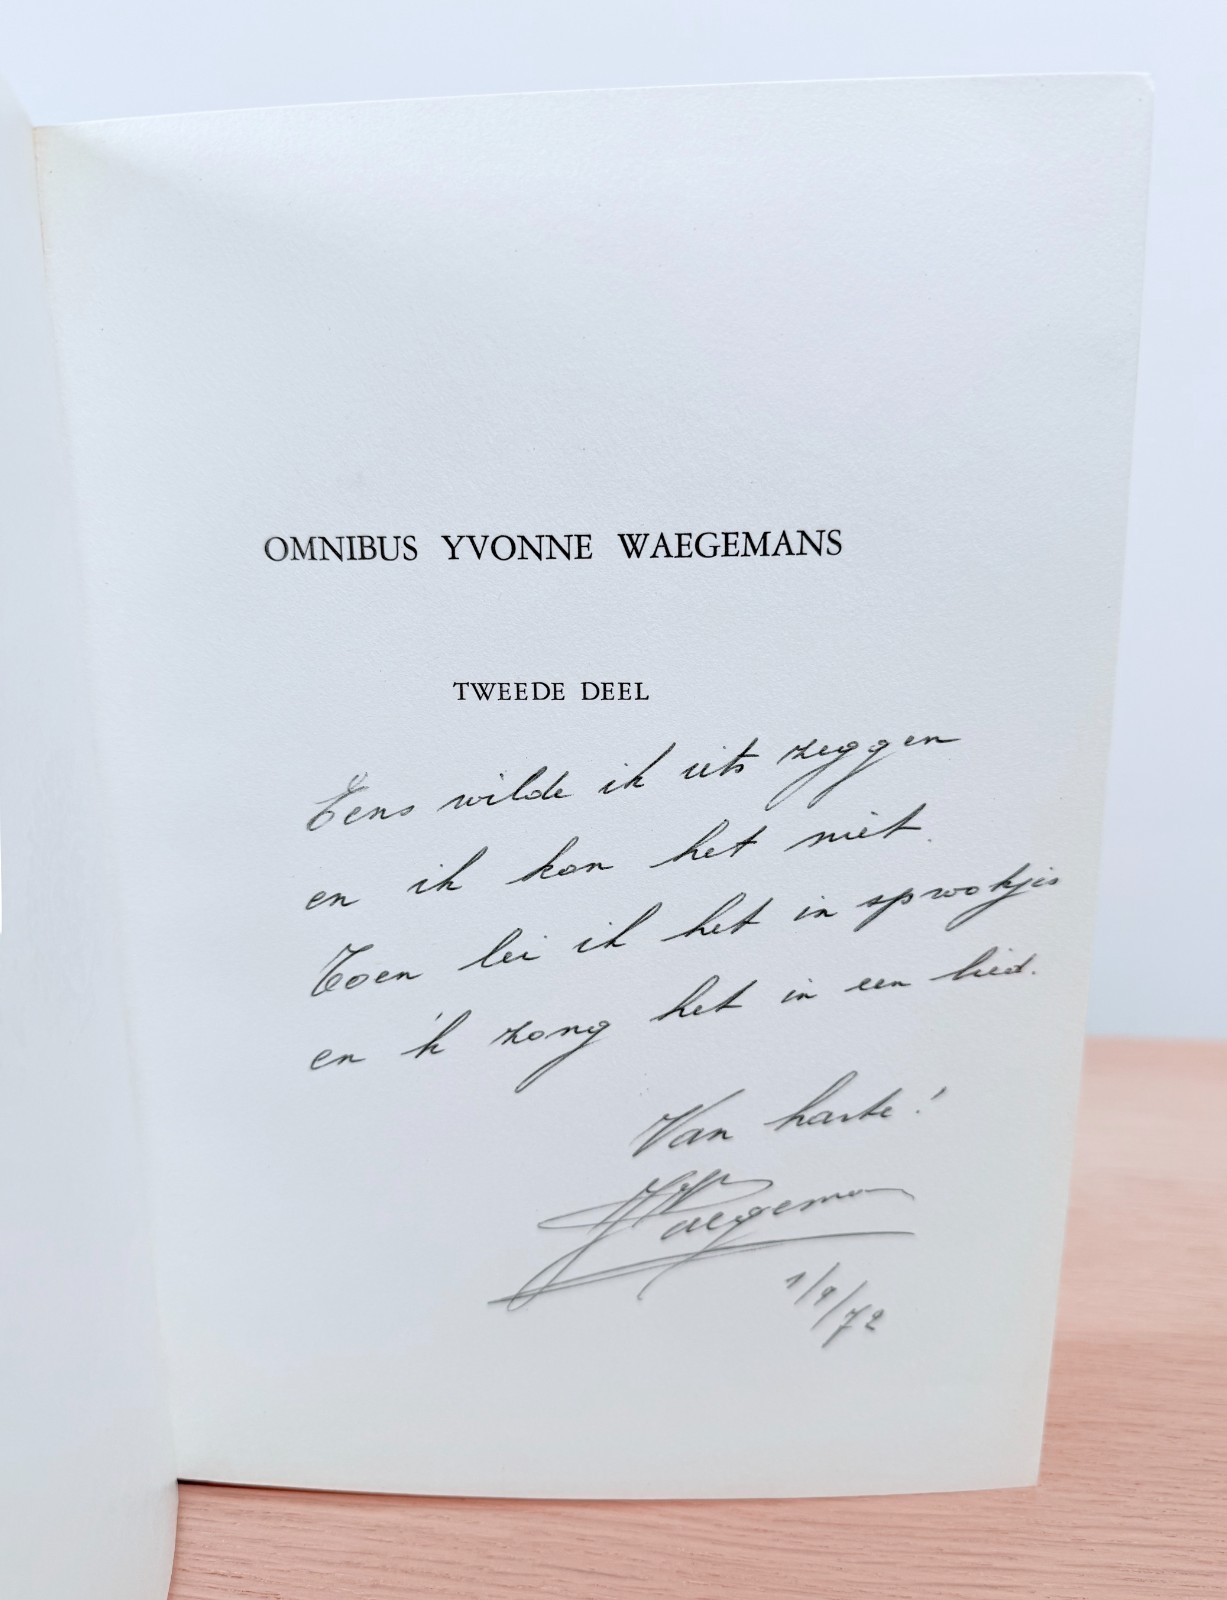 OMNIBUS YVONNE WAEGEMANS
TWEEDE DEEL
Eens wilde ik iets zeggen
en ik kon het niet.
Toen lei ik het in sprookjes
en 'k zong het in een lied.
Van harte!
Waegemans
1/9/72